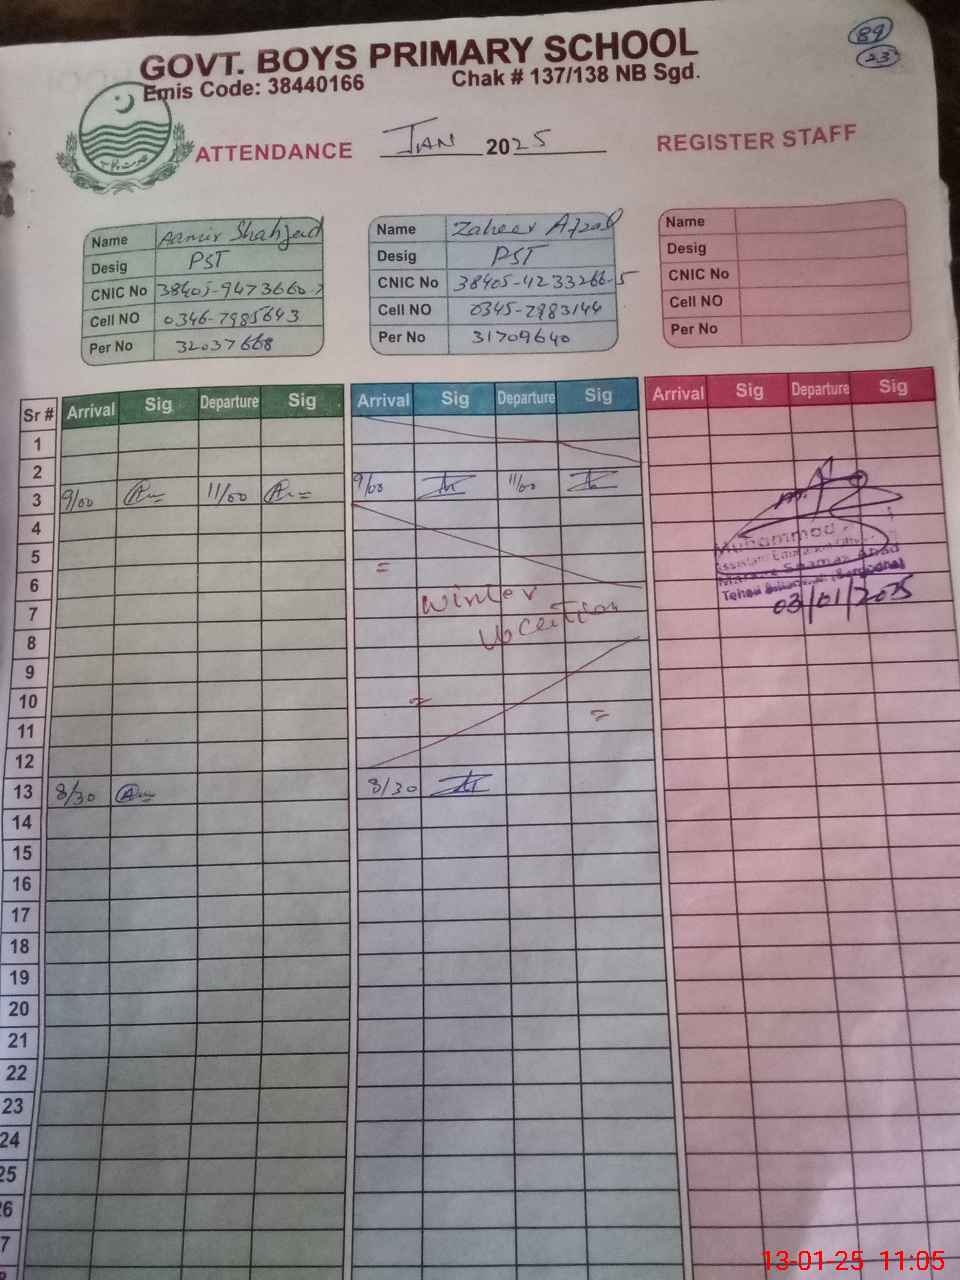 89
23
GOVT. BOYS PRIMARY SCHOOL
Emis Code: 38440166 Chak # 137/138 NB Sgd.
ATTENDANCE JAN 2025 REGISTER STAFF
Name Aamir Shahjad
Desig PST
CNIC No 38405-9473660-7
Cell NO 0346-7985643
Per No 32037668
Name Zaheer Afzal
Desig PST
CNIC No 38405-4233266-5
Cell NO 0345-7983144
Per No 31709640
Name
Desig
CNIC No
Cell NO
Per No
Sr # Arrival Sig Departure Sig Arrival Sig Departure Sig Arrival Sig Departure Sig
1
2
3 9/00 11/00 9/00 11/00
4
5
6
7
8
9
10
11
12
13 8/30 8/30
14
15
16
17
18
19
20
21
22
23
24
25
26
7
=
Winter
Vacation
=
=
Muhammad
Assistant Education Officer
Tehsil
03/01/2025
13-01-25 11:05